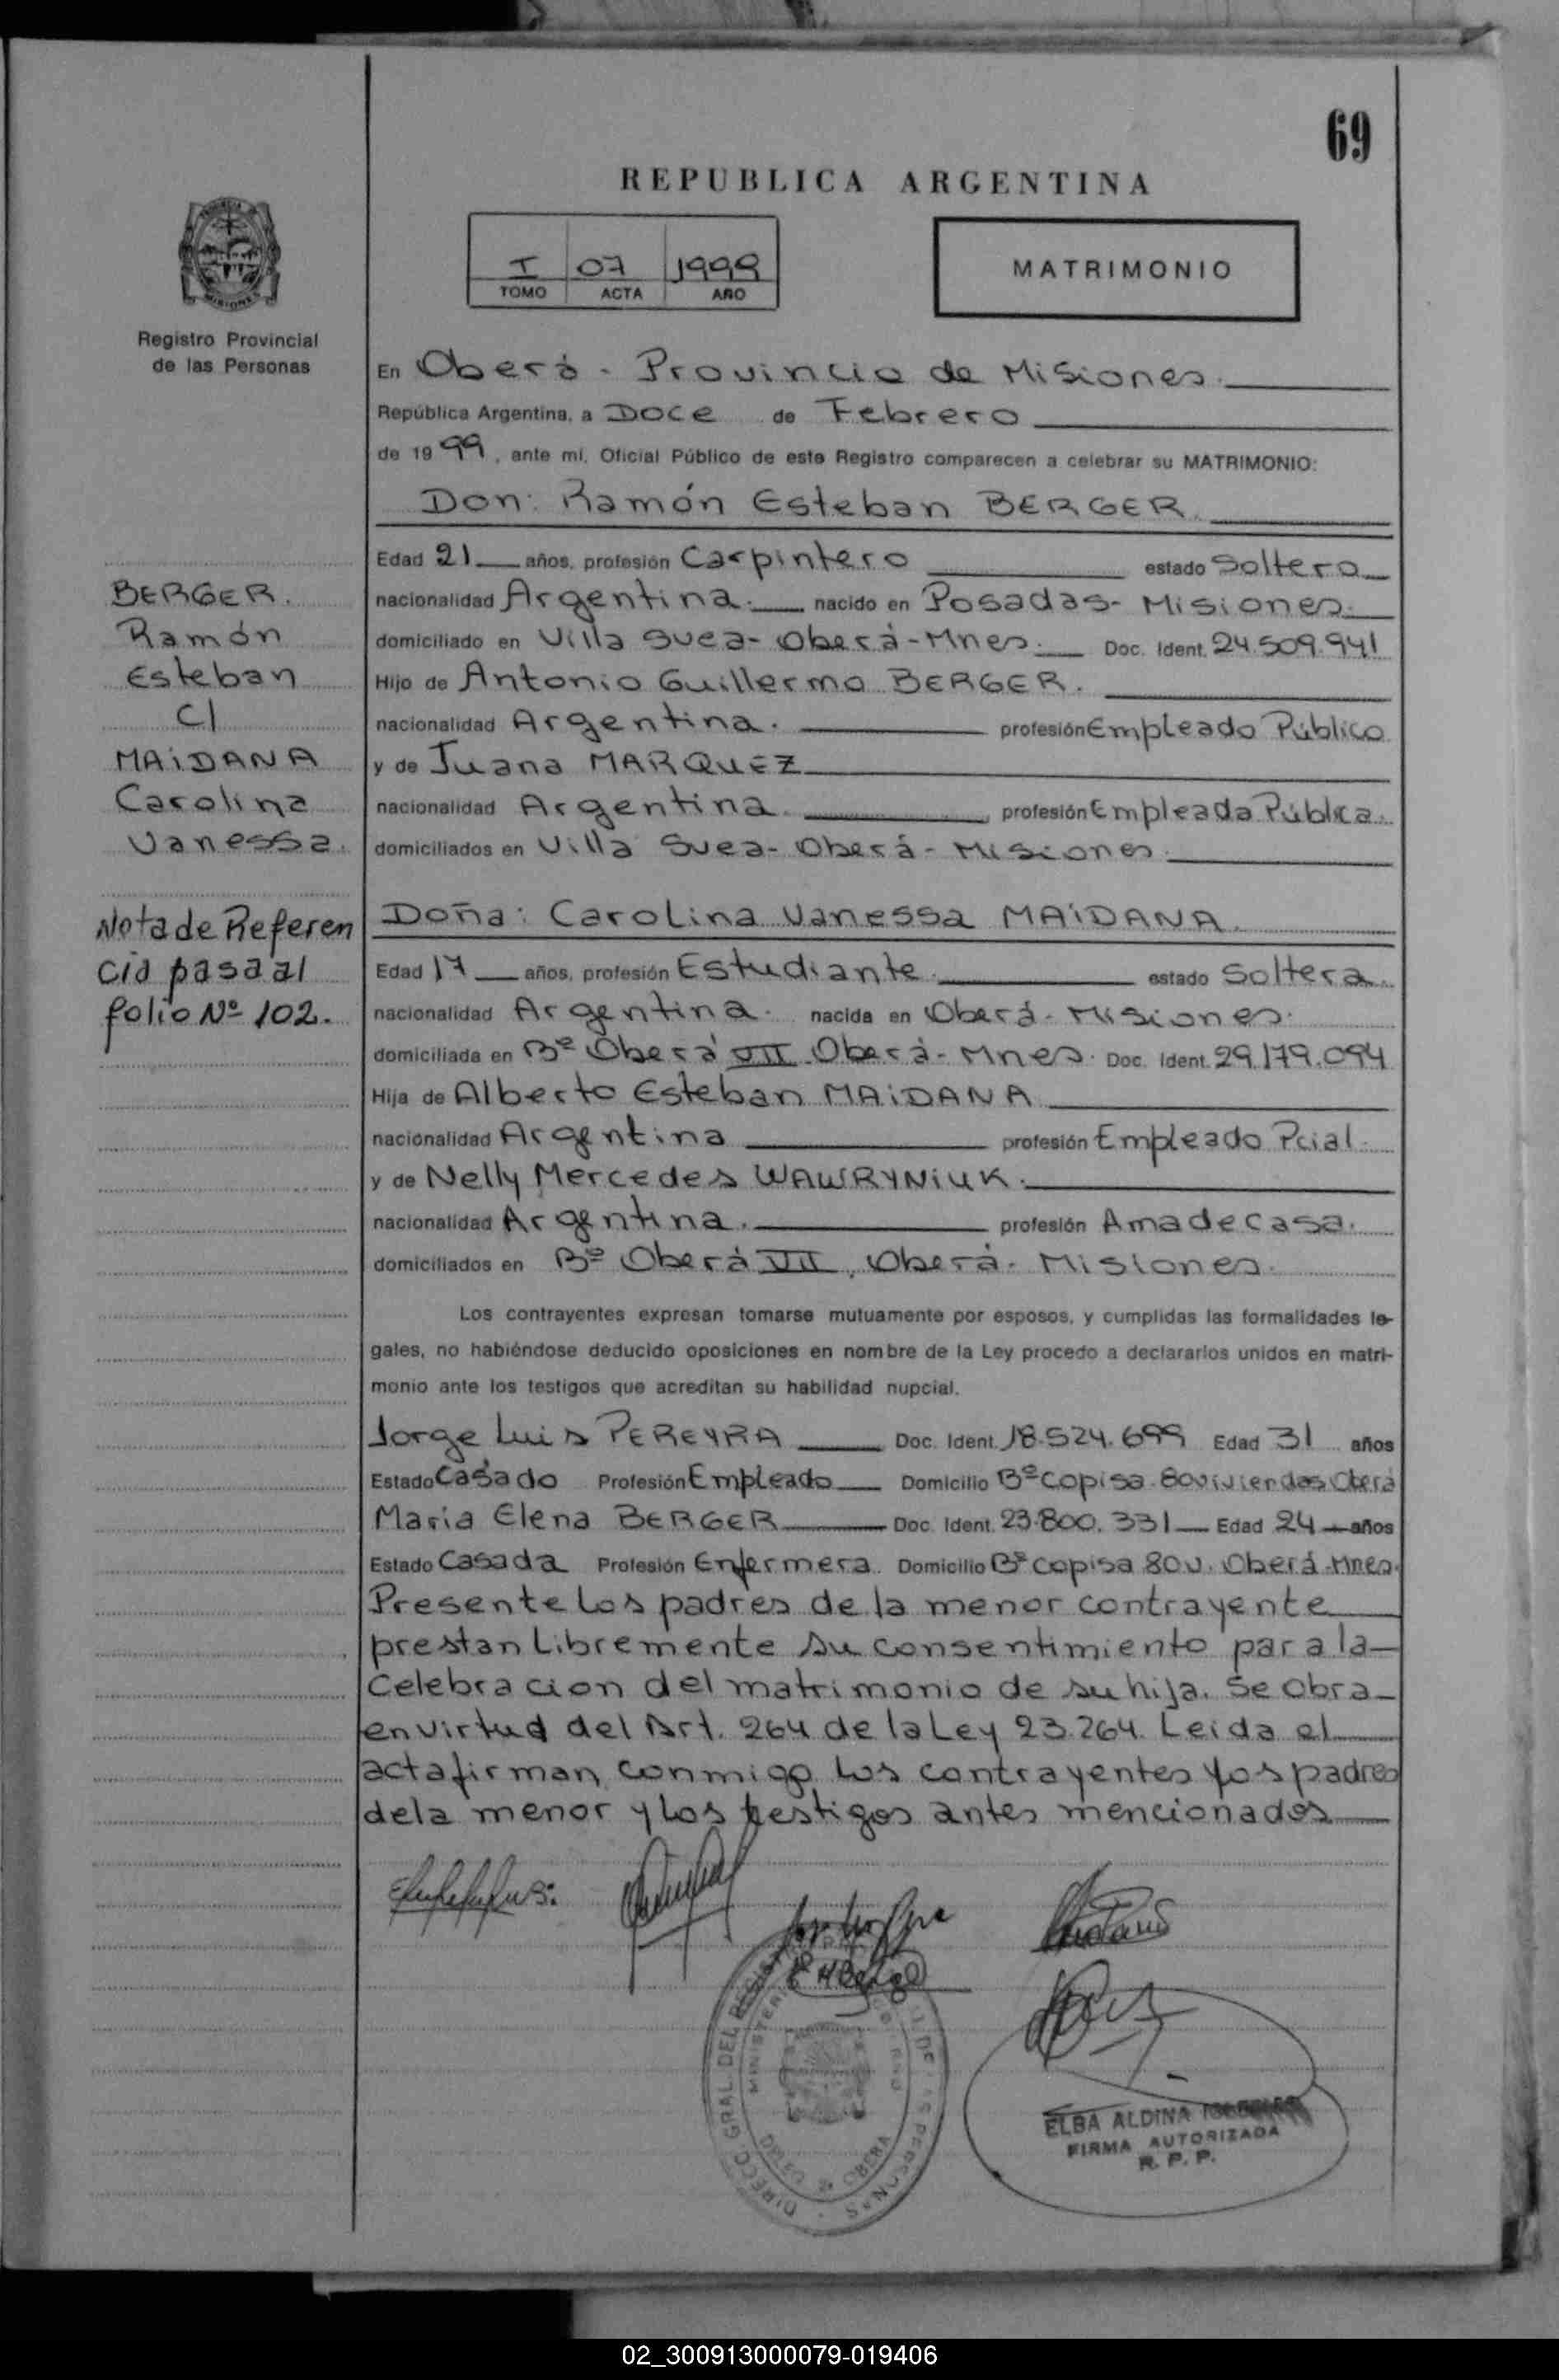 69
REPUBLICA ARGENTINA
I 07 1999
TOMO ACTA AÑO
MATRIMONIO
Registro Provincial
de las Personas
En Oberá - Provincia de Misiones.
República Argentina, a Doce de Febrero
de 1999, ante mí, Oficial Público de este Registro comparecen a celebrar su MATRIMONIO:
Don: Ramón Esteban BERGER.
Edad 21 años, profesión Carpintero estado Soltero
nacionalidad Argentina. nacido en Posadas- Misiones.
domiciliado en Villa Svea- Oberá-Mnes. Doc. Ident. 24.509.941
Hijo de Antonio Guillermo BERGER.
nacionalidad Argentina. profesión Empleado Público
y de Juana MARQUEZ
nacionalidad Argentina. profesión Empleada Pública.
domiciliados en Villa Svea- Oberá- Misiones.
Doña: Carolina Vanessa MAIDANA.
Edad 17 años, profesión Estudiante. estado Soltera.
nacionalidad Argentina. nacida en Oberá- Misiones.
domiciliada en Bº Oberá VII Oberá- Mnes. Doc. Ident. 29.179.094
Hija de Alberto Esteban MAIDANA
nacionalidad Argentina profesión Empleado Pcial.
y de Nelly Mercedes WAWRYNIUK.
nacionalidad Argentina. profesión Ama de casa.
domiciliados en Bº Oberá VII, Oberá- Misiones.
Los contrayentes expresan tomarse mutuamente por esposos, y cumplidas las formalidades le-
gales, no habiéndose deducido oposiciones en nombre de la Ley procedo a declararlos unidos en matri-
monio ante los testigos que acreditan su habilidad nupcial.
Jorge Luis PEREYRA Doc. Ident. 18.524.699 Edad 31 años
Estado Casado Profesión Empleado Domicilio Bº Copisa. 80 viviendas Oberá
Maria Elena BERGER Doc. Ident. 23.800.331 Edad 24 años
Estado Casada Profesión Enfermera. Domicilio Bº Copisa 80 v. Oberá-Mnes.
Presente Los padres de la menor contrayente
prestan Libremente su consentimiento para la
Celebracion del matrimonio de su hija. Se obra
en virtud del Art. 264 de la Ley 23.264. Leida el
acta firman conmigo los contrayentes y os padres
de la menor y Los testigos antes mencionados
BERGER.
Ramón
Esteban
C/
MAIDANA
Carolina
Vanessa.
Nota de Referen
cia pasa al
folio Nº 102.
DIRECC. GRAL. DEL REGISTRO DE LAS PERSONAS
MINISTERIO
OBERA
ELBA ALDINA
FIRMA AUTORIZADA
R. P. P.
02_300913000079-019406